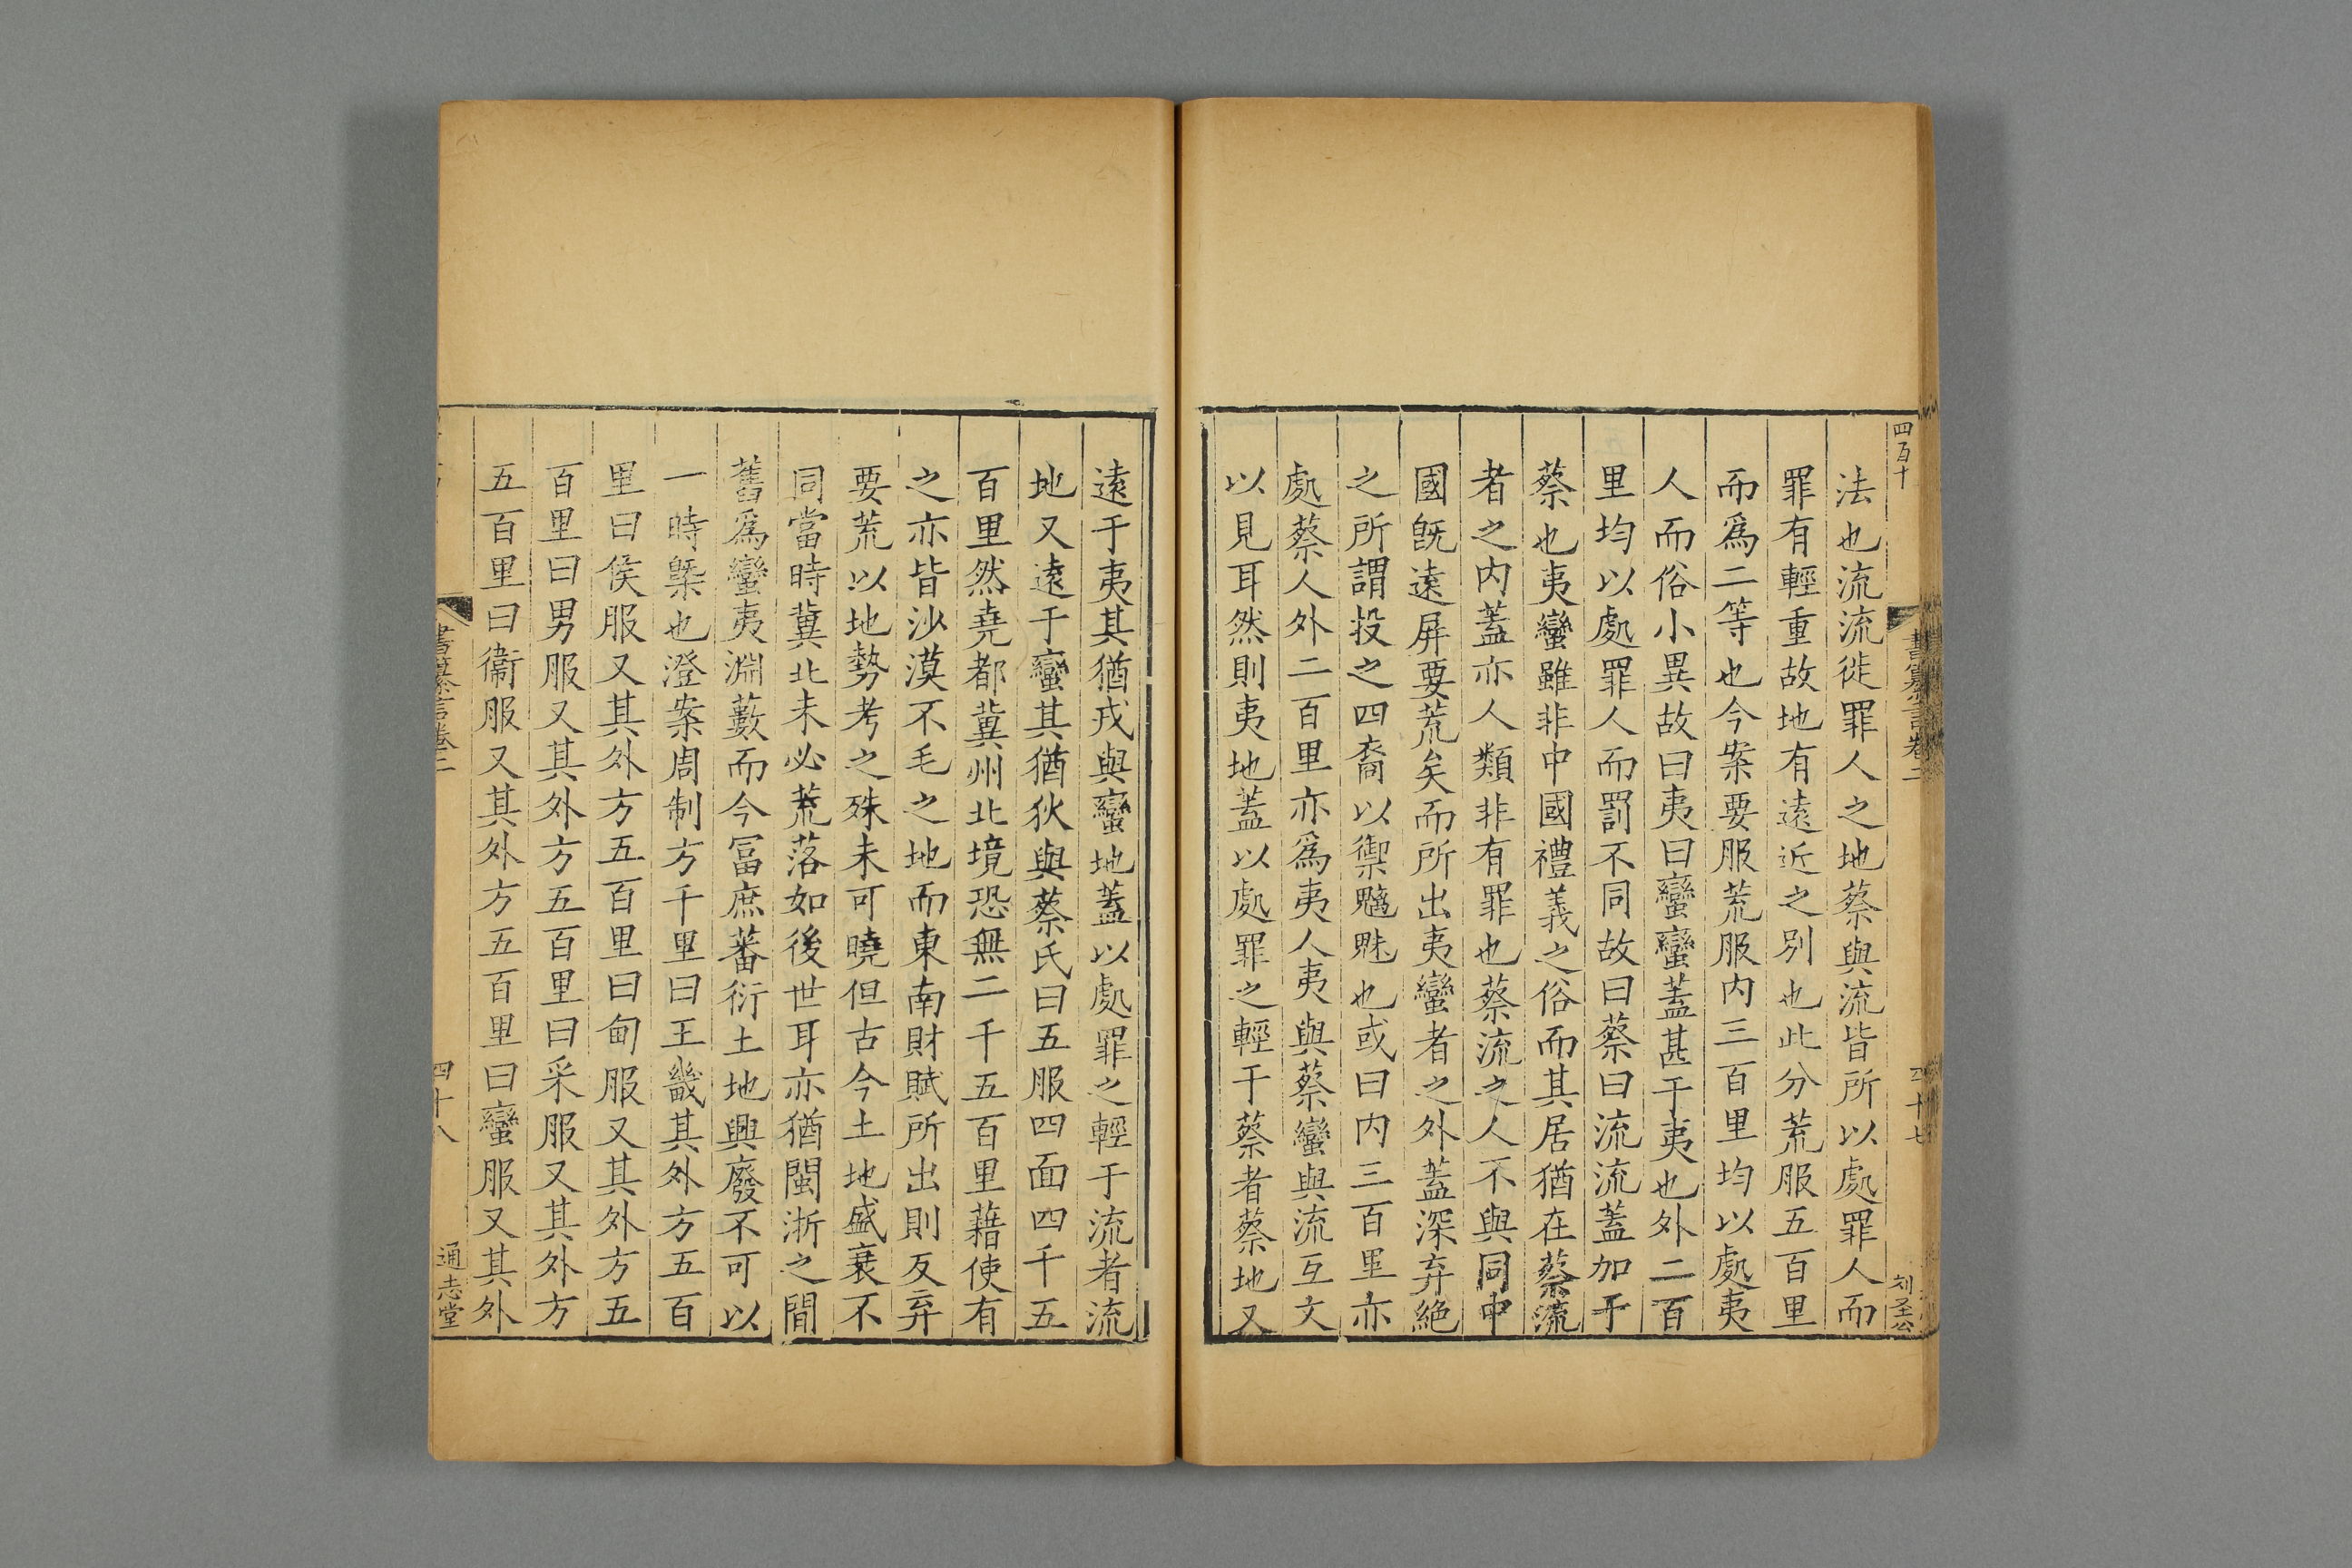 四百十
書纂言卷二
四十七
法也流流徙罪人之地蔡與流皆所以處罪人而
罪有輕重故地有遠近之別也此分荒服五百里
而爲二等也今案要服荒服内三百里均以處夷
人而俗小異故曰夷曰蠻蠻蓋甚于夷也外二百
里均以處罪人而罰不同故曰蔡曰流流蓋加于
蔡也夷蠻雖非中國禮義之俗而其居猶在蔡流
者之内蓋亦人類非有罪也蔡流之人不與同中
國旣遠屏要荒矣而所出夷蠻者之外蓋深弃絶
之所謂投之四裔以禦魑魅也或曰内三百里亦
處蔡人外二百里亦爲夷人夷與蔡蠻與流互文
以見耳然則夷地蓋以處罪之輕于蔡者蔡地又
遠于夷其猶戎與蠻地蓋以處罪之輕于流者流
地又遠于蠻其猶狄與蔡氏曰五服四面四千五
百里然堯都冀州北境恐無二千五百里藉使有
之亦皆沙漠不毛之地而東南財賦所出則反弃
要荒以地勢考之殊未可曉但古今土地盛衰不
同當時冀北未必荒落如後世耳亦猶閩浙之間
舊爲蠻夷淵藪而今冨庶蕃衍土地興廢不可以
一時槩也澄案周制方千里曰王畿其外方五百
里曰侯服又其外方五百里曰甸服又其外方五
百里曰男服又其外方五百里曰采服又其外方
五百里曰衞服又其外方五百里曰蠻服又其外
書纂言卷二
四十八
通志堂